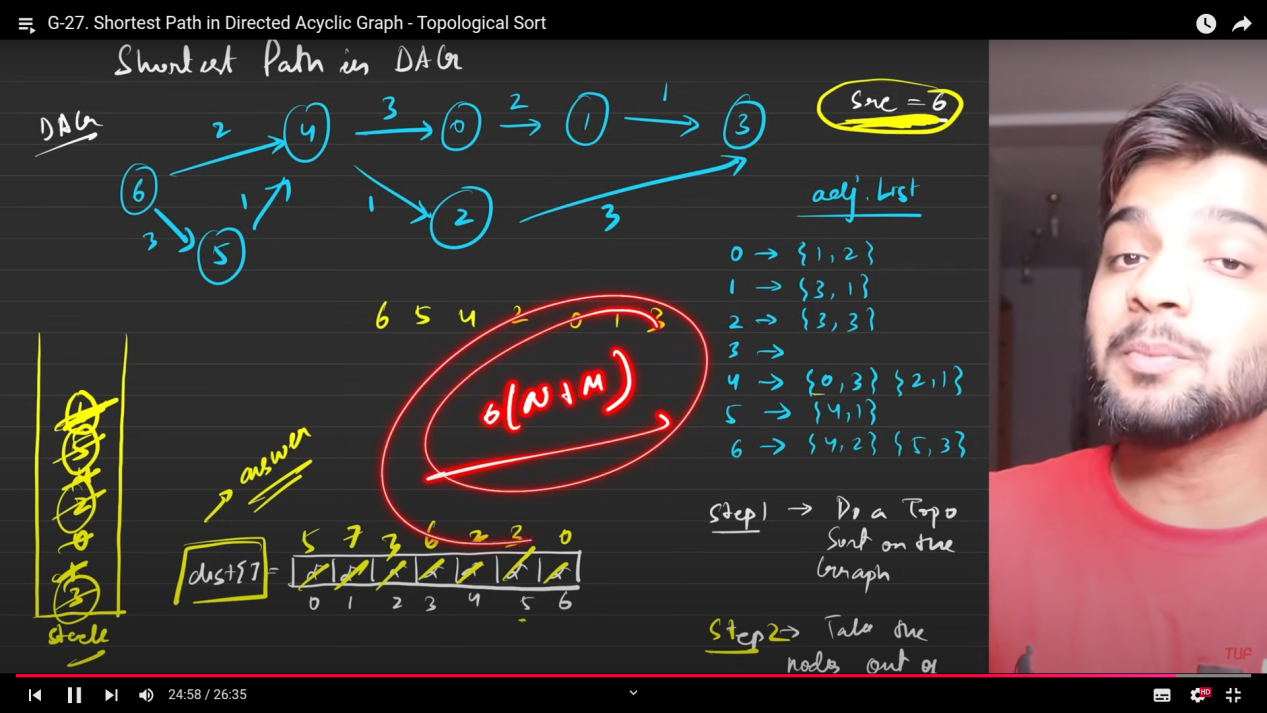 G-27. Shortest Path in Directed Acyclic Graph - Topological Sort
Shortest Path in DAG
DAG
src = 6
2 3 2 1
6 4 0 1 3
1 1
3 5 2 3
adj. List
0 → {1, 2}
1 → {3, 1}
2 → {3, 3}
3 →
4 → {0, 3} {2, 1}
5 → {4, 1}
6 → {4, 2} {5, 3}
6 5 4 2 0 1 3
O(N+M)
answer
5 7 3 6 2 3 0
dist[] =
0 1 2 3 4 5 6
stack
Step1 → Do a Topo
Sort on the
Graph
Step2 → Take the
nodes out of
TUF
24:58 / 26:35
HD